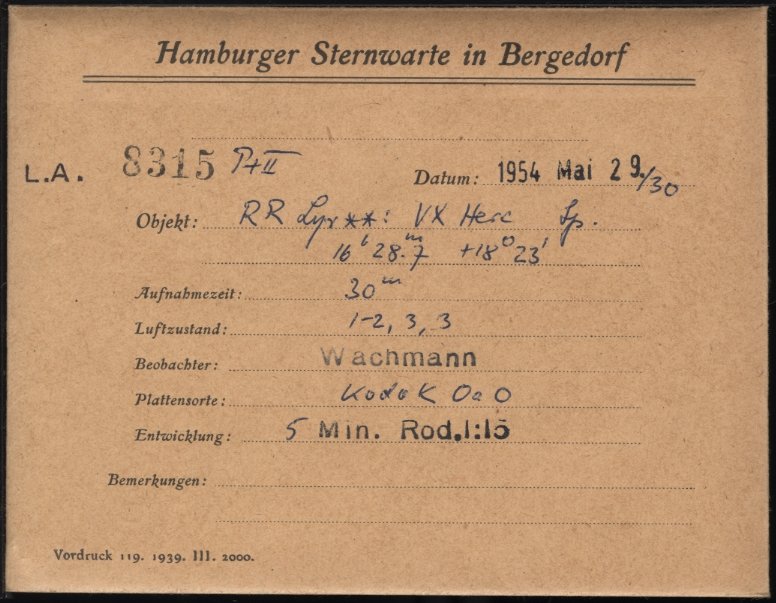 Hamburger Sternwarte in Bergedorf
L.A. 8315 P+II
Datum: 1954 Mai 29./30
Objekt: RR Lyr **: VX Herc Sp.
16ʰ 28.ᵐ7 +18° 23'
Aufnahmezeit: 30ᵐ
Luftzustand: 1-2, 3, 3
Beobachter: Wachmann
Plattensorte: Kodak OaO
Entwicklung: 5 Min. Rod.1:15
Bemerkungen:
Vordruck 119. 1939. III. 2000.